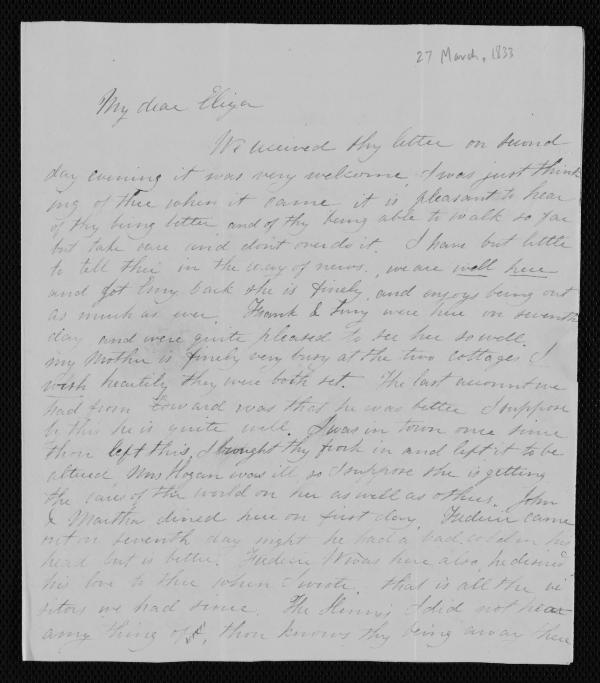 27 March, 1833
My dear Eliza
We received thy letter on second
day evening it was very welcome, I was just think
ing of thee when it came it is pleasant to hear
of thy being better and of thy being able to walk so far
but take care and dont over do it. I have but little
to tell thee in the way of news, we are well here
and got back she is finely and enjoys being out
as much as ever. & were here on seventh
day and were quite pleased to see her so well.
my Mother is finely very busy at the two cottages I
wish heartily they were both set. The last account we
had from Edward was that he was better I suppose
by this he is quite well. I was in town once since
thou left this, I brought thy frock in and left it to be
altered Mrs Hogan was ill, so I suppose she is getting
the cares of the world on her as well as others. John
& Martha dined here on first day. came
out on seventh day night he had a bad cold in his
head but is better. was here also, he desired
his love to thee when I wrote. that is all the vi
sitors we had since. The I did not hear
any thing of, thou knows thy being away here